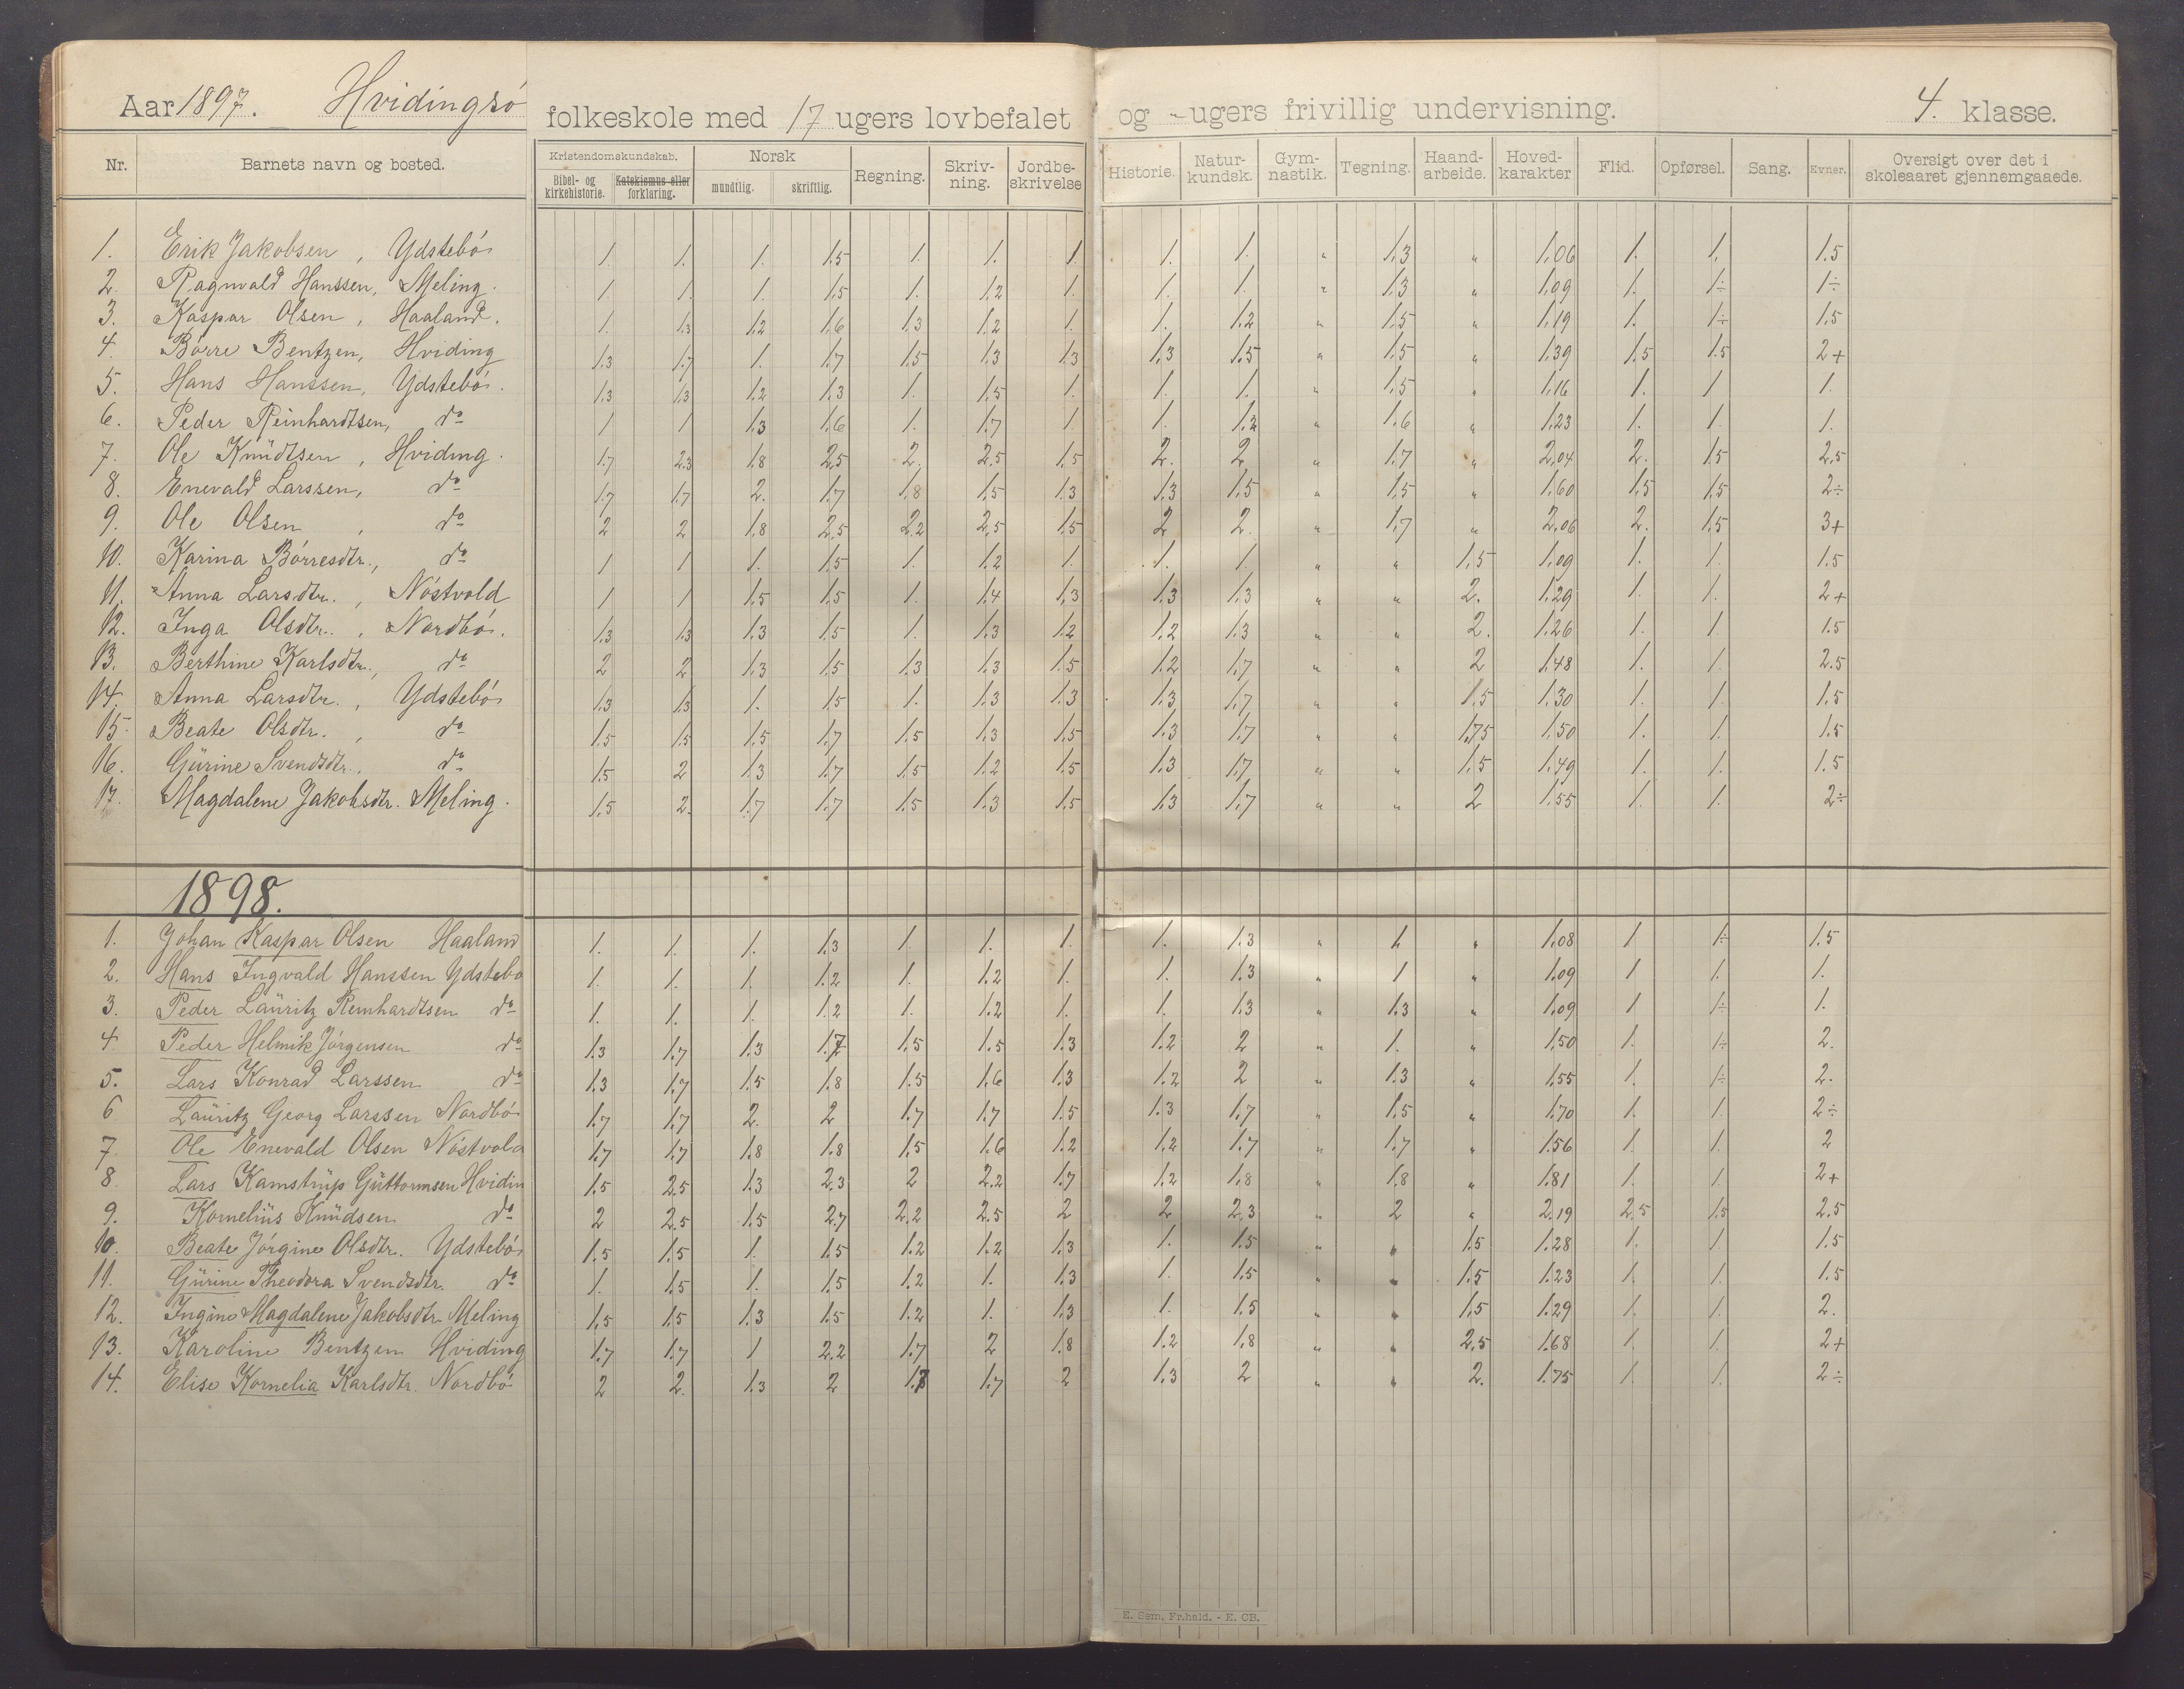 Aar 1897. Hvidingsö folkeskole med 17 ugers lovbefalet og - ugers frivillig undervisning. 4. klasse.
Nr. Barnets navn og bosted. Kristendomskundskab. Bibel- og kirkehistorie. Katekismus eller forklaring. Norsk mundtlig. skriftlig. Regning. Skriv-ning. Jordbe-skrivelse Historie. Natur-kundsk. Gym-nastik. Tegning. Haand-arbeide. Hoved-karakter Flid. Opførsel. Sang. Evner. Oversigt over det i skoleaaret gjennemgaaede.
1. Erik Jakobsen, Ydstebö 1. 1. 1. 1.5 1. 1. 1. 1. 1. " 1.3 " 1.06 1. 1. 1.5
2. Ragnvald Hanssen, Meling. 1. 1. 1. 1.5 1. 1.2 1. 1. 1. " 1.3 " 1.09 1. 1÷ 1÷
3. Kaspar Olsen, Haaland. 1. 1.3 1.2 1.6 1.3 1.2 1. 1. 1.2 " 1.5 " 1.19 1. 1÷ 1.5
4. Börre Bentzen, Hviding 1.3 1.7 1. 1.7 1.5 1.3 1.3 1.3 1.5 " 1.5 " 1.39 1.5 1.5 2+
5. Hans Hanssen, Ydstebö. 1.3 1.3 1.2 1.3 1. 1.5 1. 1. 1. " 1.5 " 1.16 1. 1 1.
6. Peder Reinhardtsen, do 1 1 1.3 1.6 1. 1.7 1 1. 1.2 " 1.6 " 1.23 1. 1. 1.
7. Ole Knudtsen, Hviding. 1.7 2.3 1.8 2.5 2. 2.5 1.5 2. 2 " 1.7 " 2.04 2. 1.5 2.5
8. Enevald Larssen, do 1.7 1.7 2. 1.7 1.8 1.5 1.3 1.3 1.5 " 1.5 " 1.60 1.5 1.5 2÷
9. Ole Olsen, do 2 2 1.8 2.5 2.2 2.5 1.5 2 2. " 1.7 " 2.06 2. 1.5 3+
10. Karina Börresdtr., do 1 1 1. 1.5 1. 1.2 1. 1. 1. " " 1.5 1.09 1. 1. 1.5
11. Anna Larsdtr., Nöstvold 1 1 1.5 1.5 1. 1.4 1.3 1.3 1.3 " " 2. 1.29 1. 1. 2+
12. Inga Olsdtr., Nordbö. 1.3 1.3 1.3 1.5 1. 1.3 1.2 1.2 1.3 " " 2. 1.26 1. 1. 1.5
13. Berthine Karlsdtr., do 2 2 1.3 1.5 1.3 1.3 1.5 1.2 1.7 " " 2 1.48 1. 1. 2.5
14. Anna Larsdtr., Ydstebö 1.3 1.3 1. 1.5 1. 1.3 1.3 1.3 1.7 " " 1.5 1.30 1. 1. 1.5
15. Beate Olsdtr., do 1.5 1.5 1.5 1.7 1.5 1.3 1.5 1.3 1.7 " " 1.75 1.50 1. 1. 1.5
16. Gurine Svendsdtr., do 1.5 2 1.3 1.7 1.5 1.2 1.5 1.3 1.7 " " 1.5 1.49 1. 1. 1.5
17. Magdalene Jakobsdtr. Meling. 1.5 2. 1.7 1.7 1.5 1.3 1.5 1.3 1.7 " " 2 1.55 1. 1. 2÷
1898.
1. Johan Kaspar Olsen Haaland 1. 1. 1. 1.3 1. 1. 1. 1. 1.3 " 1. " 1.08 1 1÷ 1.5
2. Hans Ingvald Hanssen Ydstebö 1. 1. 1. 1.2 1. 1.2 1. 1. 1.3 " 1 " 1.09 1 1. 1.
3. Peder Lauritz Reinhardtsen do 1. 1. 1. 1.2 1. 1.2 1. 1. 1.3 " 1.3 " 1.09 1 1÷ 1.
4 Peder Helmik Jörgensen do 1.3 1.7 1.3 1.7 1.5 1.5 1.3 1.2 2 " 1. " 1.50 1. 1÷ 2.
5. Lars Konrad Larssen do 1.3 1.7 1.5 1.8 1.5 1.6 1.3 1.2 2 " 1.3 " 1.55 1. 1÷ 2.
6 Lauritz Georg Larssen Nordbö 1.7 1.7 2. 2 1.7 1.7 1.5 1.3 1.7 " 1.5 " 1.70 1. 1. 2÷
7. Ole Enevald Olsen Nöstvold 1.7 1.7 1.8 1.8 1.5 1.6 1.2 1.2 1.7 " 1.7 " 1.56 1. 1. 2
8. Lars Kamstrup Guttormsen Hvidin 1.5 2.5 1.3 2.3 2 2.2 1.7 1.2 1.8 " 1.8 " 1.81 1. 1. 2+
9. Kornelius Knudsen do 2 2.5 1.5 2.7 2.2 2.5 2 2 2.3 " 2 " 2.19 2.5 1.5 2.5
10. Beate Jörgine Olsdtr. Ydstebö 1.5 1.5 1. 1.5 1.2 1.2 1.3 1. 1.5 " " 1.5 1.28 1. 1. 1.5
11. Gurine Theodora Svendsdtr. do 1. 1.5 1. 1.5 1.2 1. 1.3 1. 1.5 " " 1.5 1.23 1. 1. 1.5
12. Ingine Magdalene Jakobsdtr. Meling 1.5 1.5 1.3 1.5 1.2 1. 1.3 1. 1.5 " " 1.5 1.29 1. 1. 2.
13. Karoline Bentzen Hviding 1.7 1.7 1 2.2 1.7 2 1.8 1.2 1.8 " " 2.5 1.68 1. 1. 2+
14. Elise Kornelia Karlsdtr. Nordbö 2 2. 1.3 2 1.7 2 1.3 2 " " 2. 1.75 1. 1. 2÷
E. Sem, Fr.hald. - E. CB.